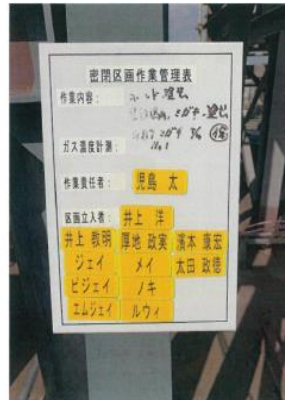 密閉区画作業管理表
作業内容:
ガス温度計測:
作業責任者: 児島 太
区画立入者: 井上 洋
井上 教明 厚地 政実 濱本 康宏
ジェイ メイ 太田 政徳
ビジェイ ノキ
エムジェイ ルウィ